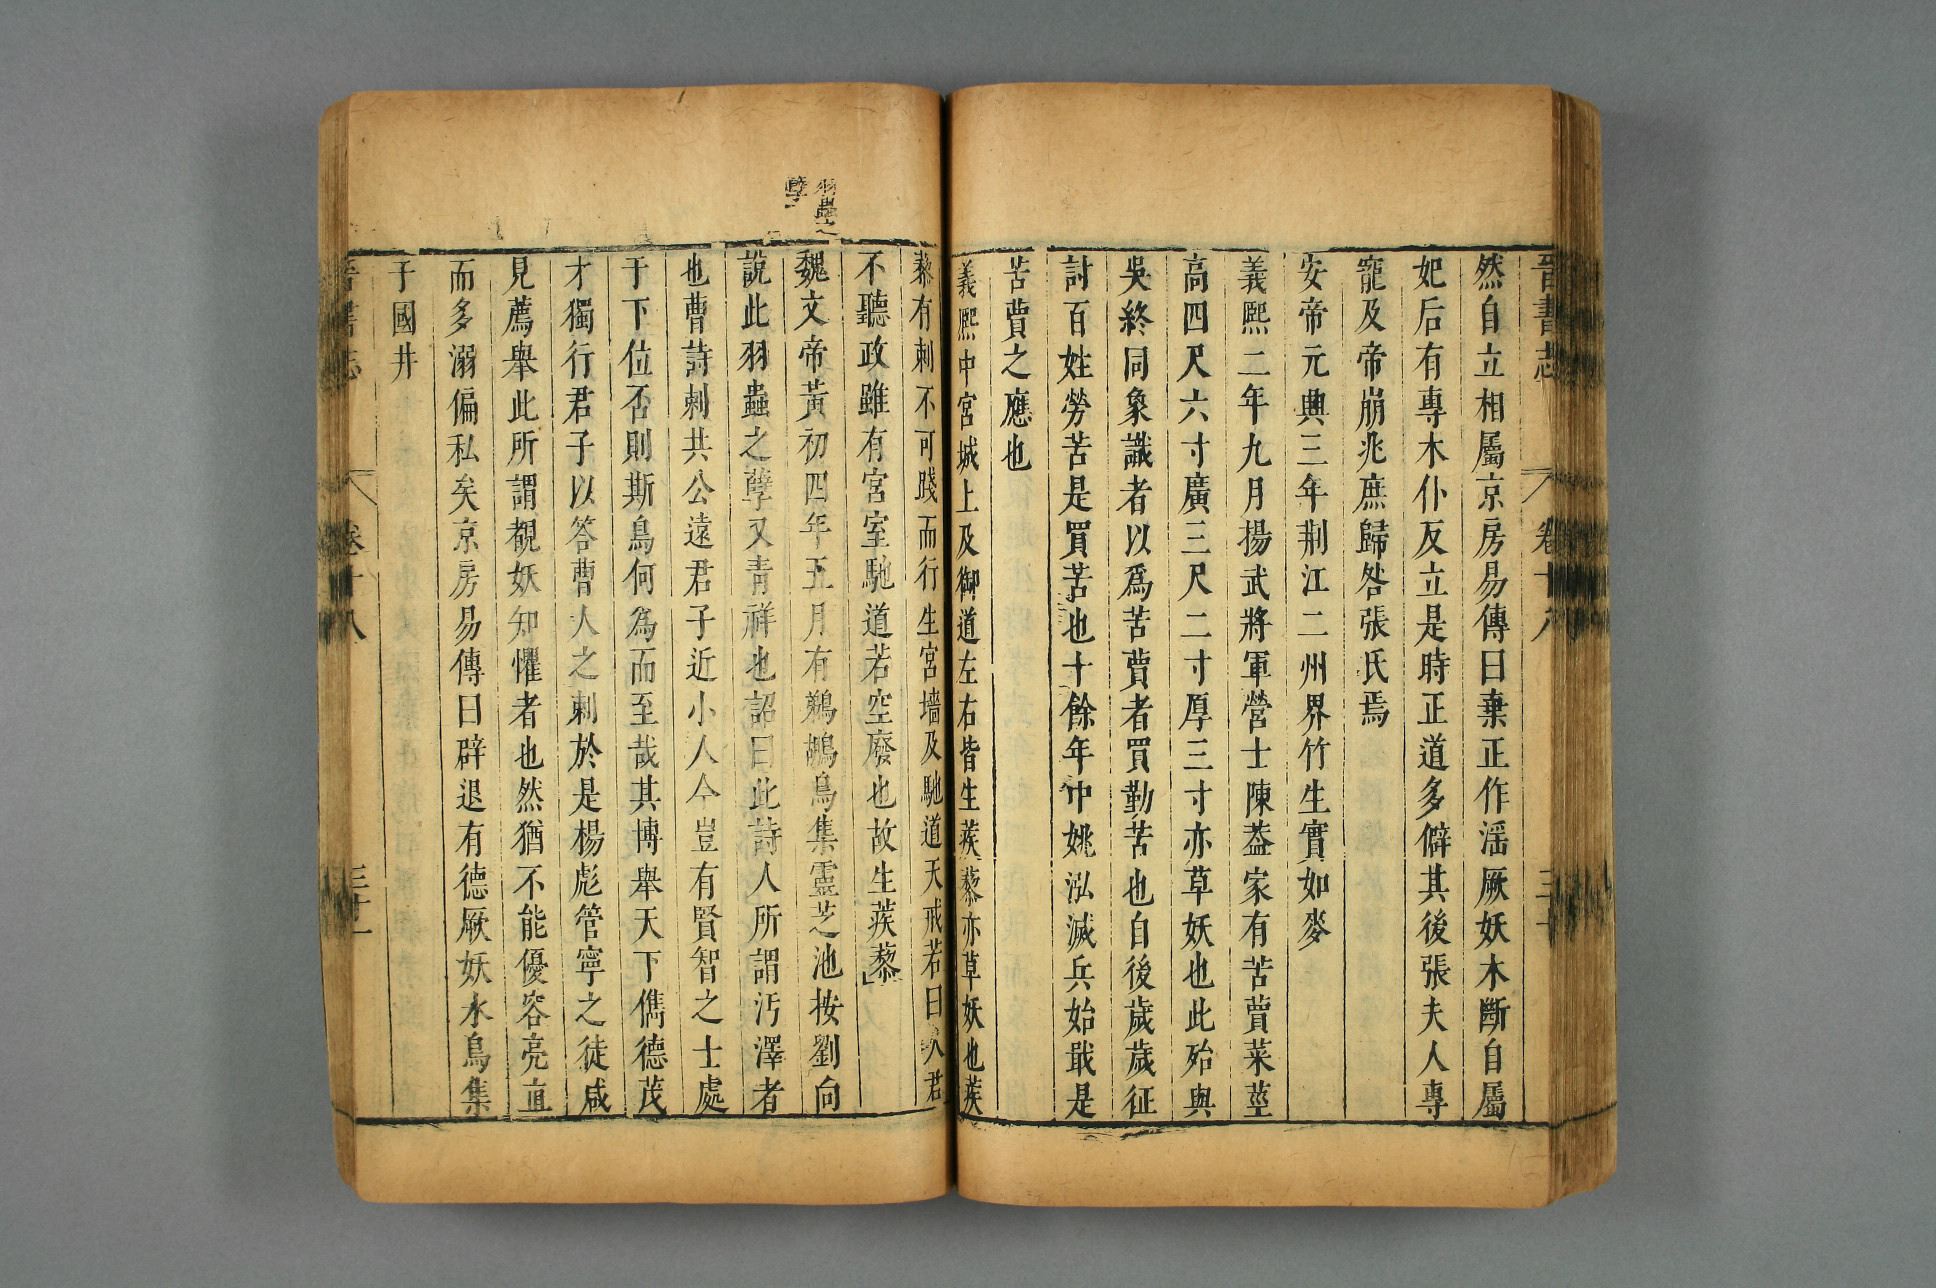 晉書志 卷十八 三十
然自立相屬京房易傳曰棄正作滛厥妖木斷自屬
妃后有專木仆反立是時正道多僻其後張夫人專
寵及帝崩兆庶歸咎張氏焉
安帝元興三年荆江二州界竹生實如麥
義熙二年九月揚武將軍營士陳葢家有苦蕒菜莖
高四尺六寸廣三尺二寸厚三寸亦草妖也此殆與
吳終同象識者以爲苦蕒者買勤苦也自後歲歲征
討百姓勞苦是買苦也十餘年中姚泓滅兵始戢是
苦蕒之應也
義熙中宮城上及御道左右皆生蒺藜亦草妖也蒺
藜有刺不可踐而行生宮墻及馳道天戒若曰人君
不聽政雖有宮室馳道若空廢也故生蒺藜
羽蟲之
孽
魏文帝黃初四年五月有鵜鶘鳥集靈芝池按劉向
說此羽蟲之孽又青祥也詔曰此詩人所謂汚澤者
也曹詩刺共公遠君子近小人今豈有賢智之士處
于下位否則斯鳥何為而至哉其博舉天下儁德茂
才獨行君子以答曹人之刺於是楊彪管寧之徒咸
見薦舉此所謂覩妖知懼者也然猶不能優容亮直
而多溺偏私矣京房易傳曰辟退有德厥妖水鳥集
于國井
晉書志 卷十八 三十一